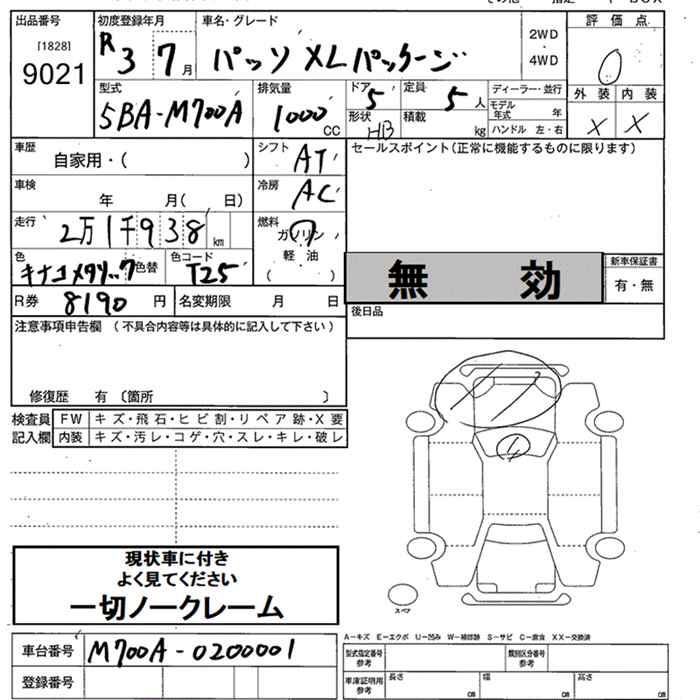 出品番号
[1828]
9021
初度登録年月
R3 7月
車名・グレード
パッソ XLパッケージ
2WD
・
4WD
評価点
0
型式
5BA-M700A
排気量
1000 CC
ドア
5
定員
5人
形状
HB
積載
kg
ディーラー・並行
モデル年式 年
ハンドル 左・右
外装 内装
X X
車歴
自家用・( )
シフト
AT
セールスポイント(正常に機能するものに限ります)
車検
年 月( 日)
冷房
AC
走行
2万1千938km
燃料
ガソリン
軽油
( )
色
キナコメタリック
色替
色コード
T25
無効
新車保証書
有・無
R券 8190円
名変期限 月 日
後日品
注意事項申告欄 (不具合内容等は具体的に記入して下さい)
修復歴 有〔箇所 〕
検査員記入欄
FW キズ・飛石・ヒビ割・リペア跡・X要
内装 キズ・汚レ・コゲ・穴・スレ・キレ・破レ
現状車に付き
よく見てください
一切ノークレーム
スペア
A-キズ E-エクボ U-凹み W-補修跡 S-サビ C-腐食 XX-交換済
車台番号 M700A-0200001
登録番号
型式指定番号参考
類別区分番号参考
車庫証明用参考
長さ cm
幅 cm
高さ cm